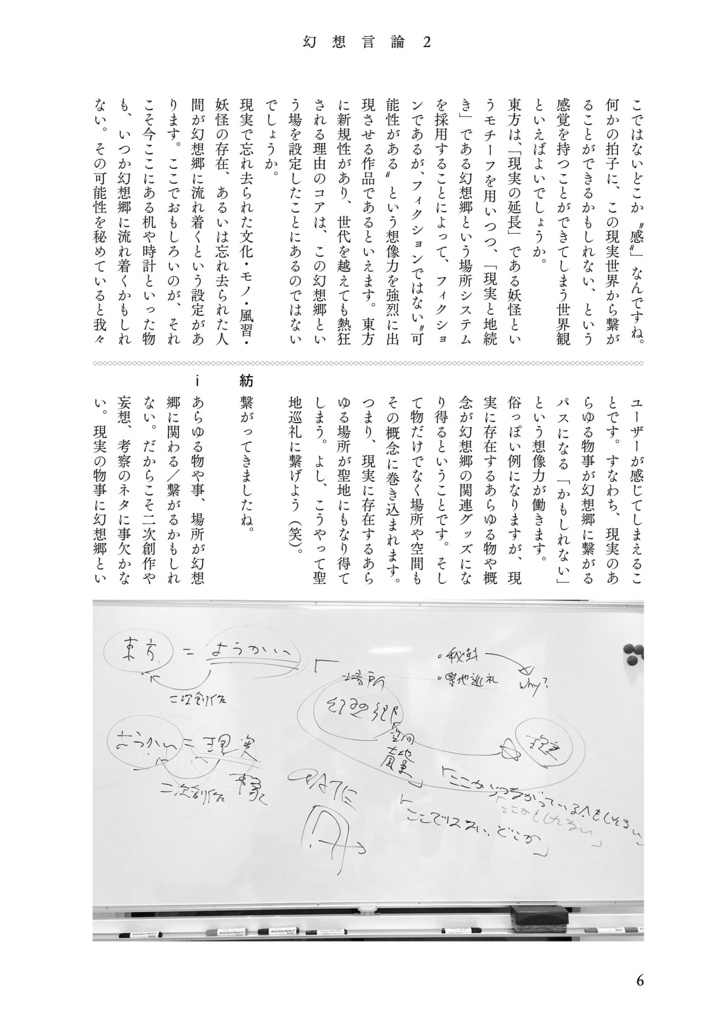 幻想言論2
こではないどこか〝感〟」なんですね。
何かの拍子に、この現実世界から繋が
ることができるかもしれない、という
感覚を持つことができてしまう世界観
といえばよいでしょうか。
東方は、「現実の延長」である妖怪とい
うモチーフを用いつつ、「現実と地続
き」である幻想郷という場所システム
を採用することによって、フィクショ
ンであるが、フィクションではない〝可
能性がある〟という想像力を強烈に出
現させる作品であるといえます。東方
に新規性があり、世代を越えても熱狂
される理由のコアは、この幻想郷とい
う場を設定したことにあるのではない
でしょうか。
現実で忘れ去られた文化・モノ・風習・
妖怪の存在、あるいは忘れ去られた人
間が幻想郷に流れ着くという設定があ
ります。ここでおもしろいのが、それ
こそ今ここにある机や時計といった物
も、いつか幻想郷に流れ着くかもしれ
ない。その可能性を秘めていると我々
ユーザーが感じてしまえるこ
とです。すなわち、現実のあ
らゆる物事が幻想郷に繋がる
パスになる「かもしれない」
という想像力が働きます。
俗っぽい例になりますが、現
実に存在するあらゆる物や概
念が幻想郷の関連グッズにな
り得るということです。そし
て物だけでなく場所や空間も
その概念に巻き込まれます。
つまり、現実に存在するあら
ゆる場所が聖地にもなり得て
しまう。よし、こうやって聖
地巡礼に繋げよう（笑）。
紡 繋がってきましたね。
i あらゆる物や事、場所が幻想
郷に関わる／繋がるかもしれ
ない。だからこそ二次創作や
妄想、考察のネタに事欠かな
い。現実の物事に幻想郷とい
東方＝ようかい
二次創作
ようかい＝現実
二次創作
場所
幻想郷
空間
GATE
・秘封
・聖地巡礼
why?
「ここがつながっているかもしれない」
「ここかもしれない」
「ここではない、どこか」
6